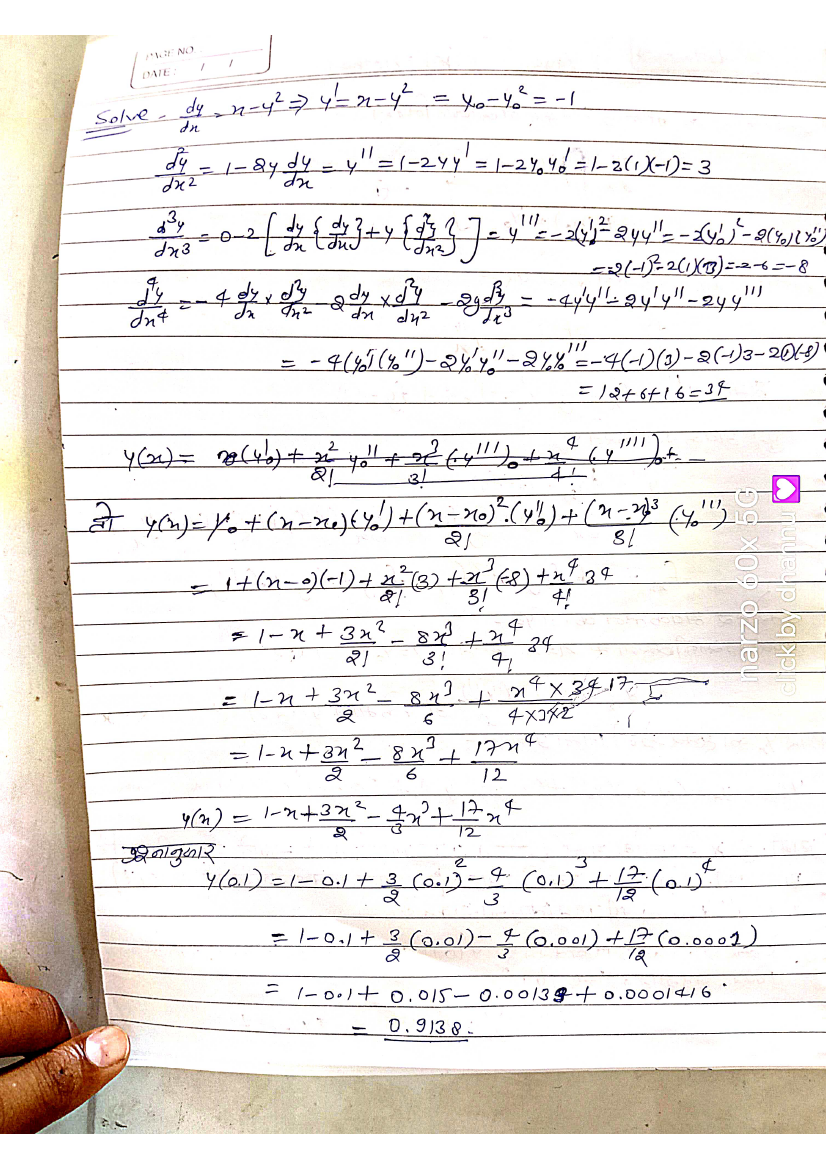 PAGE NO.
DATE: / /
Solve - dy/dx = x-y² ⇒ y' = x-y² = x₀-y₀² = -1
d²y/dx² = 1-2y dy/dx = y'' = 1-2yy' = 1-2y₀y₀' = 1-2(1)(-1) = 3
d³y/dx³ = 0-2[dy/dx {dy/dx} + y {d²y/dx²}] = y''' = -2(y')² - 2yy'' = -2(y₀')² - 2(y₀)(y₀'')
= -2(-1)² - 2(1)(3) = -2-6 = -8
d⁴y/dx⁴ = -4 dy/dx × d²y/dx² - 2 dy/dx × d²y/dx² - 2y d³y/dx³ = -4y'y'' - 2y'y'' - 2yy'''
= -4(y₀')(y₀'') - 2y₀'y₀'' - 2y₀y₀''' = -4(-1)(3) - 2(-1)3 - 2(1)(-8)
= 12+6+16 = 34
y(x) = x(y₀') + x²/2! y₀'' + x³/3! (y''')₀ + x⁴/4! (y'''')₀ + --
तो y(x) = y₀ + (x-x₀)(y₀') + (x-x₀)²/2! (y₀'') + (x-x₀)³/3! (y₀''')
= 1+(x-0)(-1) + x²/2! (3) + x³/3! (-8) + x⁴/4! 34
= 1-x + 3x²/2! - 8x³/3! + x⁴/4! 34
= 1-x + 3x²/2 - 8x³/6 + x⁴×34 17/4×3×2
= 1-x + 3x²/2 - 8x³/6 + 17x⁴/12
y(x) = 1-x + 3x²/2 - 4/3 x³ + 17/12 x⁴
प्रश्नानुसार
y(0.1) = 1-0.1 + 3/2 (0.1)² - 4/3 (0.1)³ + 17/12 (0.1)⁴
= 1-0.1 + 3/2 (0.01) - 4/3 (0.001) + 17/12 (0.0001)
= 1-0.1 + 0.015 - 0.00133 + 0.0001416
= 0.9138
narzo 60x 5G
click by dhannu